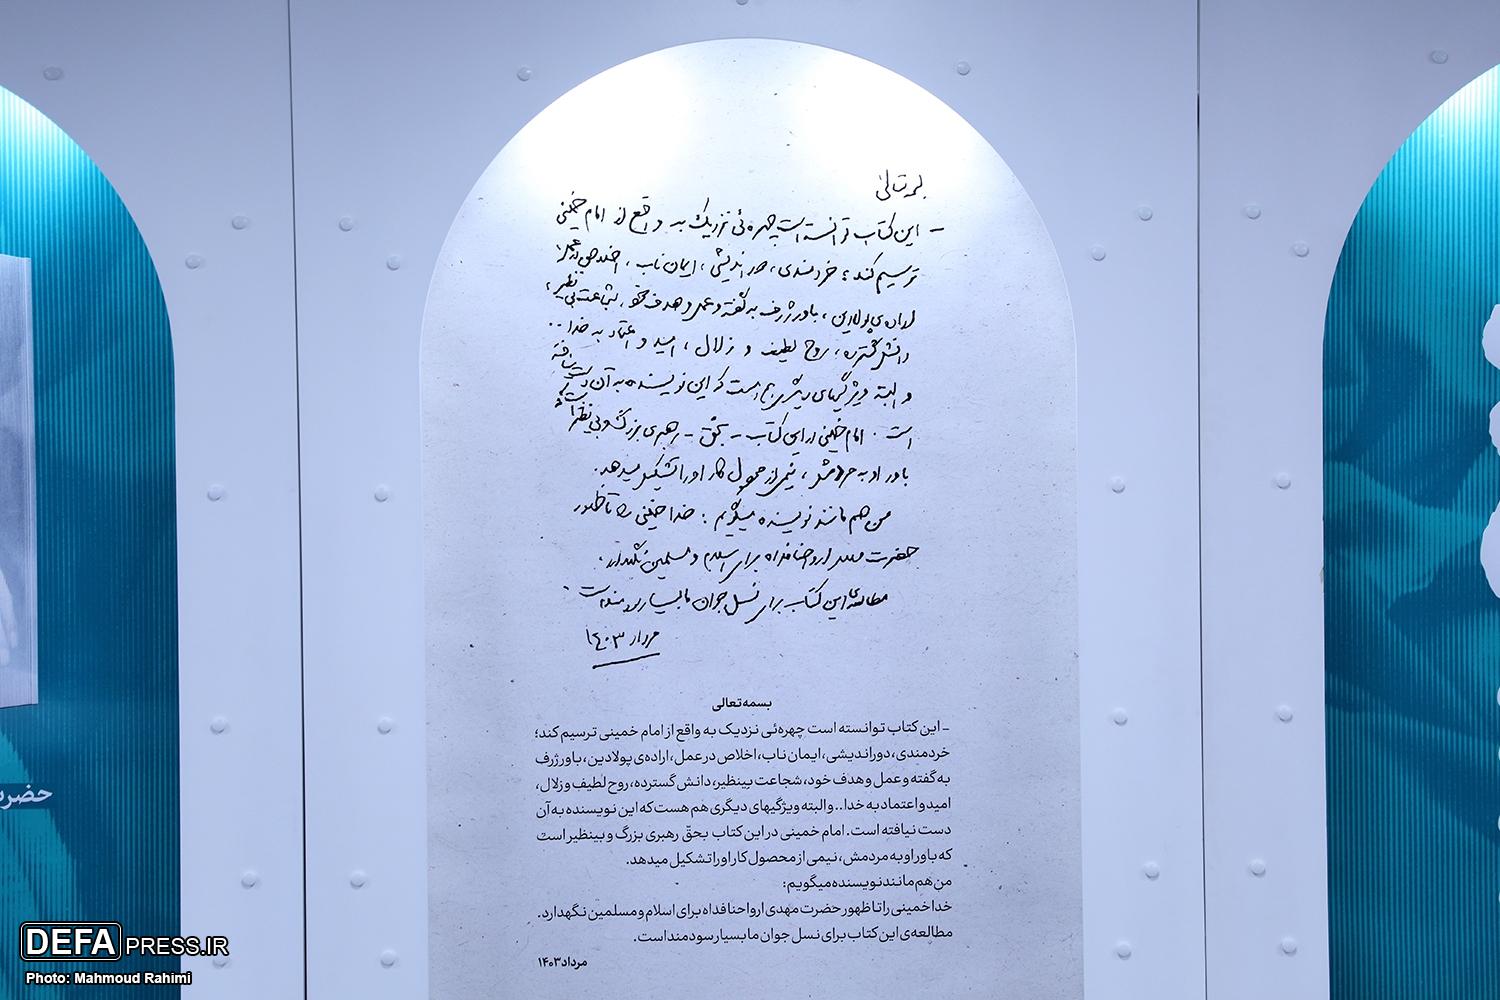 بسمه تعالی
- این کتاب توانسته است چهره‌ئی نزدیک به واقع از امام خمینی
ترسیم کند؛ خردمندی، دوراندیشی، ایمان ناب، اخلاص در عمل،
اراده‌ی پولادین، باور ژرف به گفته و عمل و هدف خود، شجاعت بی‌نظیر،
دانش گسترده، روح لطیف و زلال، امید و اعتماد به خدا..
و البته ویژگیهای دیگری هم هست که این نویسنده به آن دست نیافته
است. امام خمینی در این کتاب - بحق - رهبری بزرگ و بی‌نظیر است که
باور او به مردمش، نیمی از محصول کار او را تشکیل میدهد.
من هم مانند نویسنده میگویم: خدا خمینی را تا ظهور
حضرت مهدی ارواحنا فداه برای اسلام و مسلمین نگهدارد.
مطالعه‌ی این کتاب برای نسل جوان ما بسیار سودمند است.
مرداد ۱۴۰۳
بسمه تعالی
- این کتاب توانسته است چهره‌ئی نزدیک به واقع از امام خمینی ترسیم کند؛
خردمندی، دوراندیشی، ایمان ناب، اخلاص در عمل، اراده‌ی پولادین، باور ژرف
به گفته و عمل و هدف خود، شجاعت بینظیر، دانش گسترده، روح لطیف و زلال،
امید و اعتماد به خدا.. و البته ویژگیهای دیگری هم هست که این نویسنده به آن
دست نیافته است. امام خمینی در این کتاب بحقّ رهبری بزرگ و بینظیر است
که باور او به مردمش، نیمی از محصول کار او را تشکیل میدهد.
من هم مانند نویسنده میگویم:
خدا خمینی را تا ظهور حضرت مهدی ارواحنا فداه برای اسلام و مسلمین نگهدارد.
مطالعه‌ی این کتاب برای نسل جوان ما بسیار سودمند است.
مرداد ۱۴۰۳
DEFAPRESS.IR
Photo: Mahmoud Rahimi